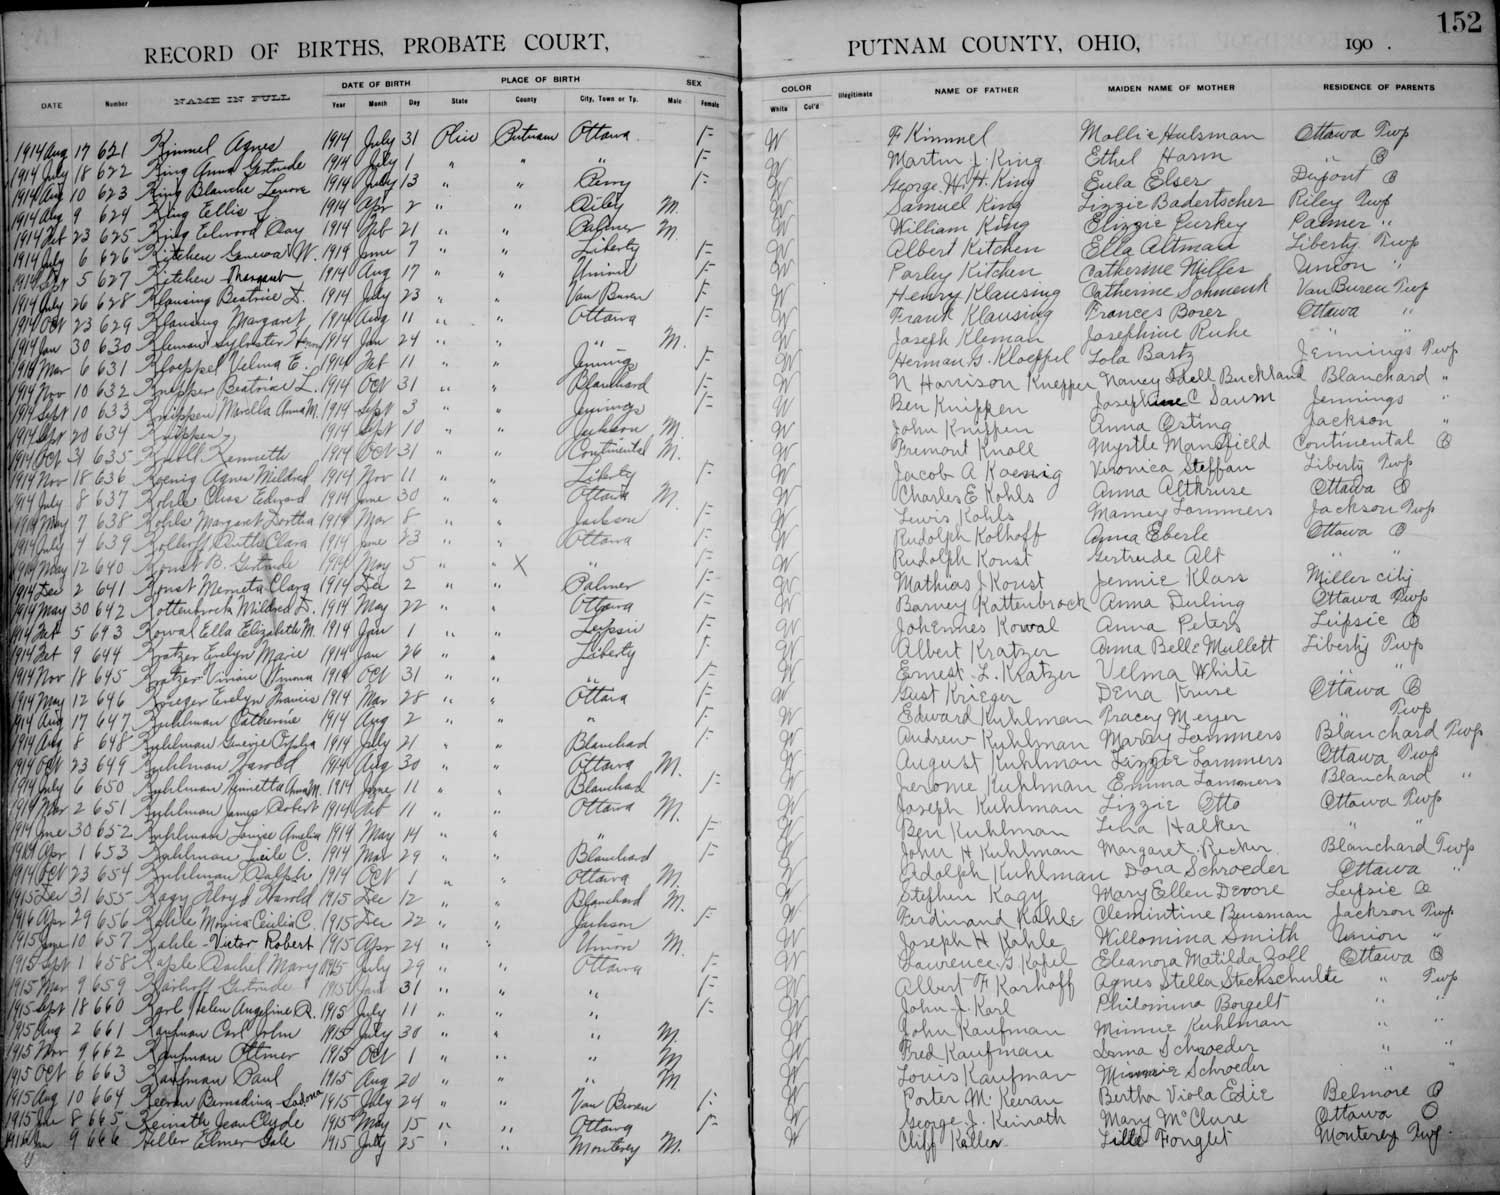 152
RECORD OF BIRTHS, PROBATE COURT, PUTNAM COUNTY, OHIO, 190 .
DATE OF BIRTH PLACE OF BIRTH SEX COLOR
DATE Number NAME IN FULL Year Month Day State County City, Town or Tp. Male Female White Col'd Illegitimate NAME OF FATHER MAIDEN NAME OF MOTHER RESIDENCE OF PARENTS
1914 Aug 17 621 Kimmel Agnes 1914 July 31 Ohio Putnam Ottawa F W F Kimmel Mollie Hulsman Ottawa Twp
1914 July 18 622 King Anna Gertrude 1914 July 1 " " " F W Martin J. King Ethel Harm " O
1914 Aug 10 623 King Blanche Lenore 1914 July 13 " " Perry F W George W. H. King Eula Elser Dupont O
1914 Aug 9 624 King Ellis 1914 Apr 2 " " Riley M. W Samuel King Lizzie Badertscher Riley Twp
1914 Feb 23 625 King Elwood Day 1914 Feb 21 " " Palmer M. W William King Elizzie Curkey Palmer "
1914 July 6 626 Kitchen Geneva W. 1914 June 7 " " Liberty F W Albert Kitchen Ella Altman Liberty Twp
1914 5 627 Kitchen Margaret 1914 Aug 17 " " Union F W Parley Kitchen Catherine Miller Union "
1914 July 26 628 Klausing Beatrice 1914 July 23 " " Van Buren F W Henry Klausing Catherine Schmenk Van Buren Twp
1914 Oct 23 629 Klausing Margaret 1914 Aug 11 " " Ottawa F W Frank Klausing Frances Borer Ottawa "
1914 Jan 30 630 Kleman Sylvester 1914 Jan 24 " " " M. W Joseph Kleman Josephine Ruhe " "
1914 Mar 6 631 Kloeppel Velma E. 1914 Feb 11 " " Jennings F W Herman G. Kloeppel Lola Bartz Jennings Twp
1914 Nov 10 632 Knepper Beatrice L. 1914 Oct 31 " " Blanchard F W N Harrison Knepper Nancy Idell Buckland Blanchard "
1914 Sept 10 633 Knippen Marella Anna M. 1914 Sept 3 " " Jennings F W Ben Knippen Josephine C Saum Jennings "
1914 Sept 20 634 Knippen 1914 Sept 10 " " Jackson M W John Knippen Anna Osting Jackson "
1914 Oct 31 635 Knoll Kenneth 1914 Oct 31 " " Continental M. W Fremont Knoll Myrtle Mansfield Continental O
1914 Nov 18 636 Koenig Agnes Mildred 1914 Nov 11 " " Liberty F W Jacob A Koenig Veronica Steffan Liberty Twp
1914 July 8 637 Kohls Edward 1914 June 30 " " Ottawa M. W Charles E Kohls Anna Altkruse Ottawa O
1914 May 7 638 Kohls Margaret Dortha 1914 Mar 8 " " Jackson F W Lewis Kohls Mamey Lammers Jackson Twp
1914 July 4 639 Kolhoff Ruth Clara 1914 June 23 " " Ottawa F W Rudolph Kolhoff Anna Eberle Ottawa O
1914 May 12 640 Konst B. Gertrude 1914 May 5 " " X " F W Rudolph Konst Gertrude Alt " "
1914 Dec 2 641 Konst Merneta Clara 1914 Dec 2 " " Palmer F W Mathias J Konst Jennie Klars Miller City
1914 May 30 642 Kottenbrock Mildred D. 1914 May 22 " " Ottawa F W Barney Kattenbrock Anna Duling Ottawa Twp
1914 Feb 5 643 Kowal Ella Elizabeth M. 1914 Jan 1 " " Leipsic F W Johennes Kowal Anna Peters Leipsic O
1914 Feb 9 644 Kratzer Evelyn Marie 1914 Jan 26 " " Liberty F W Albert Kratzer Anna Belle Mullett Liberty Twp
1914 Nov 18 645 Kratzer Vivian 1914 Oct 31 " " " F W Ernest L. Kratzer Velma White " "
1914 May 12 646 Krieger Evelyn Francis 1914 Mar 28 " " Ottawa F W Gust Krieger Dena Kruse Ottawa O
1914 Aug 17 647 Kuhlman Catherine 1914 Aug 2 " " " F W Edward Kuhlman Tracey Meyer " Twp
1914 Aug 8 648 Kuhlman 1914 July 21 " " Blanchard F W Andrew Kuhlman Mary Lammers Blanchard Twp
1914 Oct 23 649 Kuhlman Harold 1914 Aug 30 " " Ottawa M. W August Kuhlman Lizzie Lammers Ottawa Twp
1914 July 6 650 Kuhlman Anna M. 1914 June 11 " " Blanchard F W Jerome Kuhlman Emma Lammers Blanchard "
1914 Mar 2 651 Kuhlman James Robert 1914 Feb 11 " " Ottawa M. W Joseph Kuhlman Lizzie Otto Ottawa Twp
1914 June 30 652 Kuhlman Louise Amelia 1914 May 14 " " " F W Ben Kuhlman Lena Halker " "
1914 Apr 1 653 Kuhlman Leila C. 1914 Mar 29 " " Blanchard F W John H Kuhlman Margaret Recker Blanchard Twp
1914 Oct 23 654 Kuhlman Ralph 1914 Oct 1 " " Ottawa M W Adolph Kuhlman Dora Schroeder Ottawa "
1915 Dec 31 655 Kagy Floyd Harold 1915 Dec 12 " " Blanchard M. W Stephen Kagy Mary Ellen Devore Leipsic O
1916 Apr 29 656 Kahle Monica Cecilia C. 1915 Dec 22 " " Jackson F W Ferdinand Kahle Clementine Bensman Jackson Twp
1915 June 10 657 Kahle-Victor Robert 1915 Apr 24 " " Union M. W Joseph H Kahle Willomina Smith Union "
1915 Sept 1 658 Kaple Rachel Mary 1915 July 29 " " Ottawa F W Lawrence G Kapel Eleanora Matilda Zoll Ottawa O
1915 Mar 9 659 Karhoff Gertrude 1915 Jan 31 " " " F W Albert F Karhoff Agnes Stella Steckschulte " Twp
1915 Sept 18 660 Karl Helen Angeline R. 1915 July 11 " " " F W John J. Karl Philomina Borgelt " "
1915 Aug 2 661 Kaufman Carl John 1915 July 30 " " " M. W John Kaufman Minnie Kuhlman " "
1915 Nov 9 662 Kaufman Ottmer 1915 Oct 1 " " " M W Fred Kaufman Schroeder " "
1915 Oct 6 663 Kaufman Paul 1915 Aug 20 " " " M W Louis Kaufman Minnie Schroeder " "
1915 Aug 10 664 Keeran Bernadina 1915 July 24 " " Van Buren F W Porter M. Keeran Bertha Viola Edie Belmore O
1915 8 665 Keinath Jean Clyde 1915 May 15 " " Ottawa F W George J. Keinath Mary McClure Ottawa O
9 666 Keller Elmer Gale 1915 July 25 " " Monterey M. W Cliff Keller Lille Fonglet Monterey Twp.